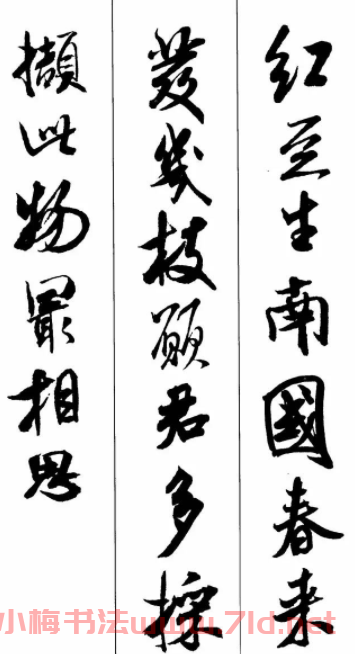 红豆生南國春来
發幾枝願君多採
擷此物最相思
小梅书法www.7ld.net